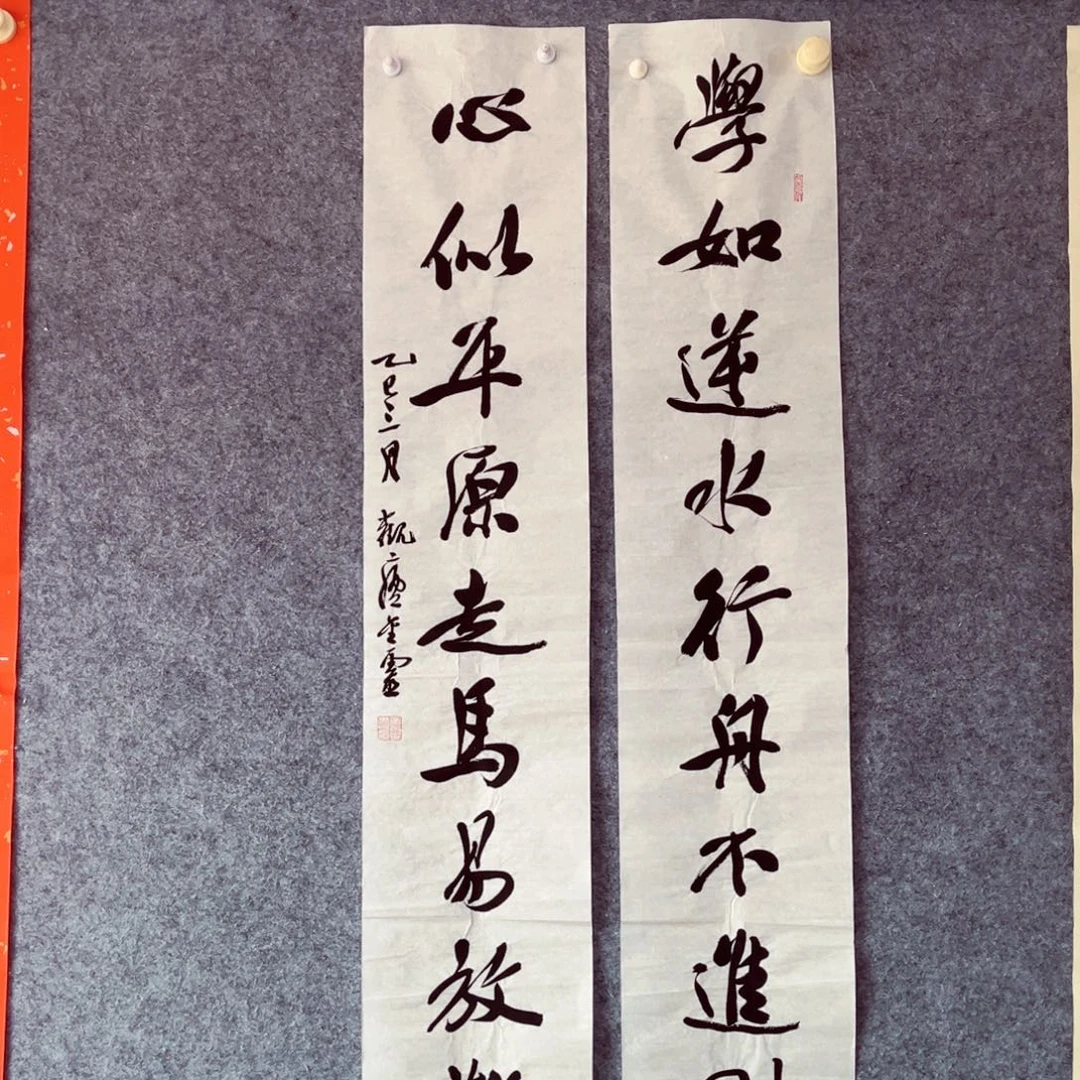 學如逆水行舟不進
心似平原走馬易放
乙巳三月